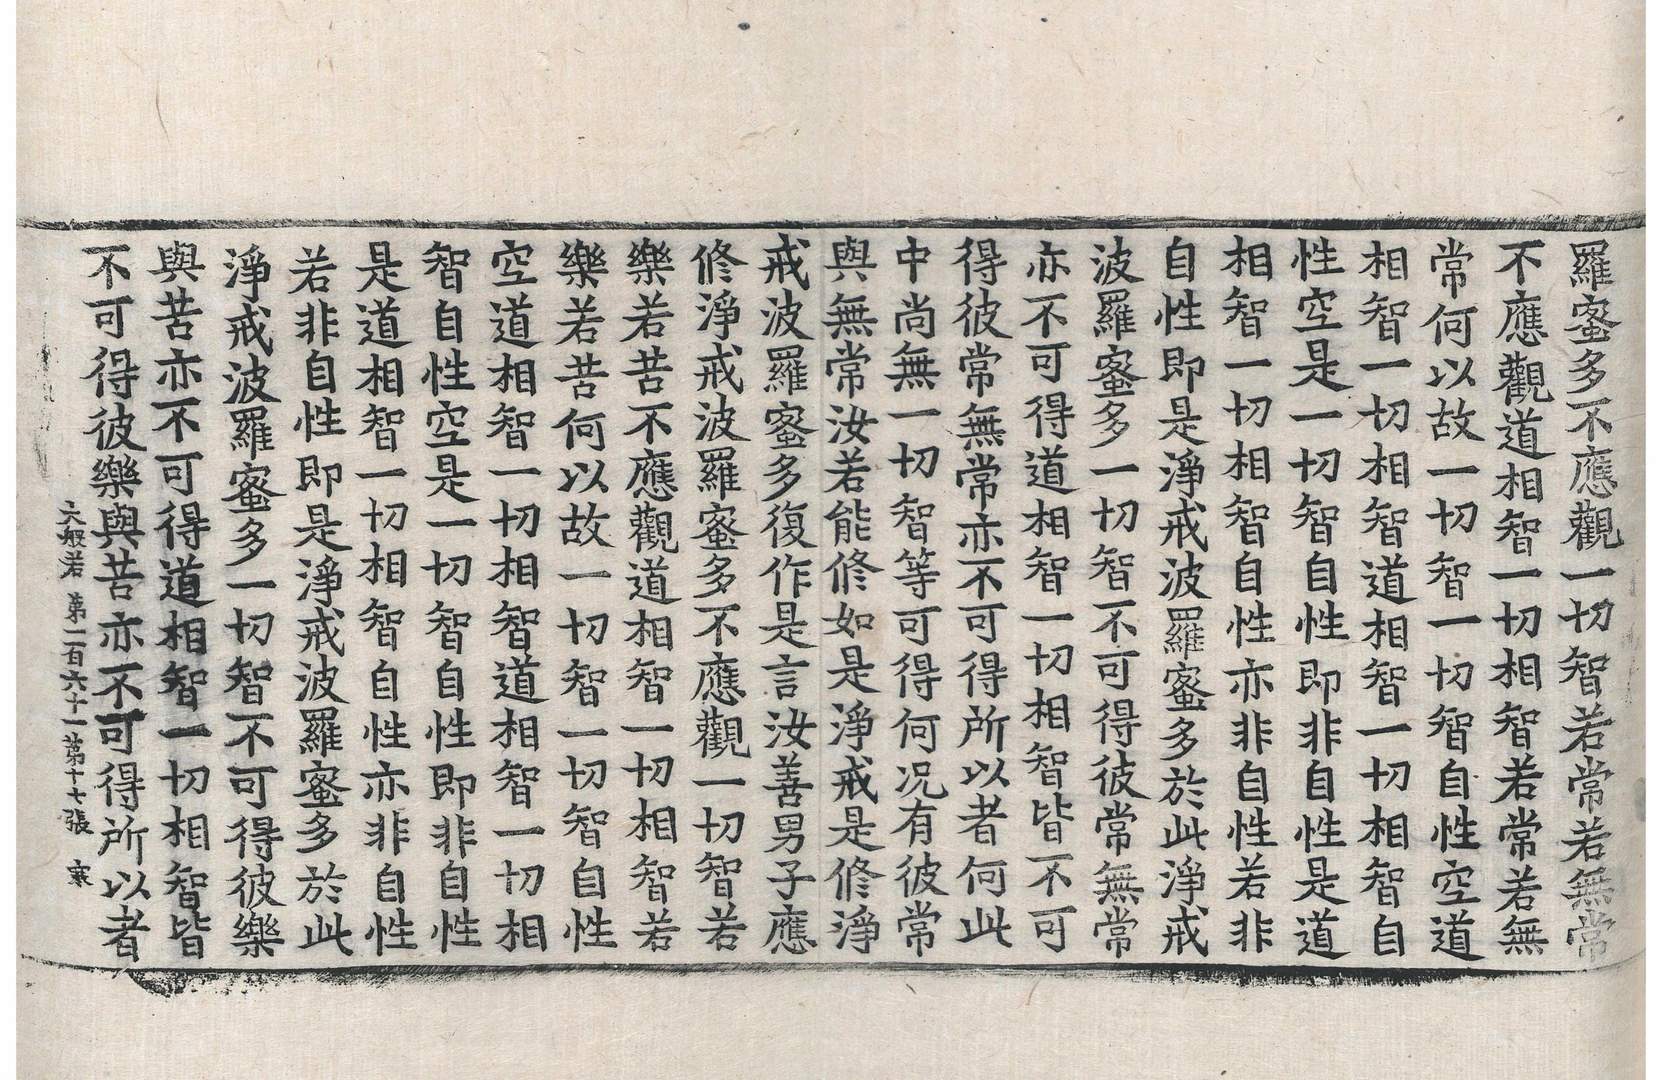 羅蜜多不應觀一切智若常若無常
不應觀道相智一切相智若常若無
常何以故一切智一切智自性空道
相智一切相智道相智一切相智自
性空是一切智自性即非自性是道
相智一切相智自性亦非自性若非
自性即是淨戒波羅蜜多於此淨戒
波羅蜜多一切智不可得彼常無常
亦不可得道相智一切相智皆不可
得彼常無常亦不可得所以者何此
中尚無一切智等可得何況有彼常
與無常汝若能修如是淨戒是修淨
戒波羅蜜多復作是言汝善男子應
修淨戒波羅蜜多不應觀一切智若
樂若苦不應觀道相智一切相智若
樂若苦何以故一切智一切智自性
空道相智一切相智道相智一切相
智自性空是一切智自性即非自性
是道相智一切相智自性亦非自性
若非自性即是淨戒波羅蜜多於此
淨戒波羅蜜多一切智不可得彼樂
與苦亦不可得道相智一切相智皆
不可得彼樂與苦亦不可得所以者
大般若 第一百六十一第十七張 寒